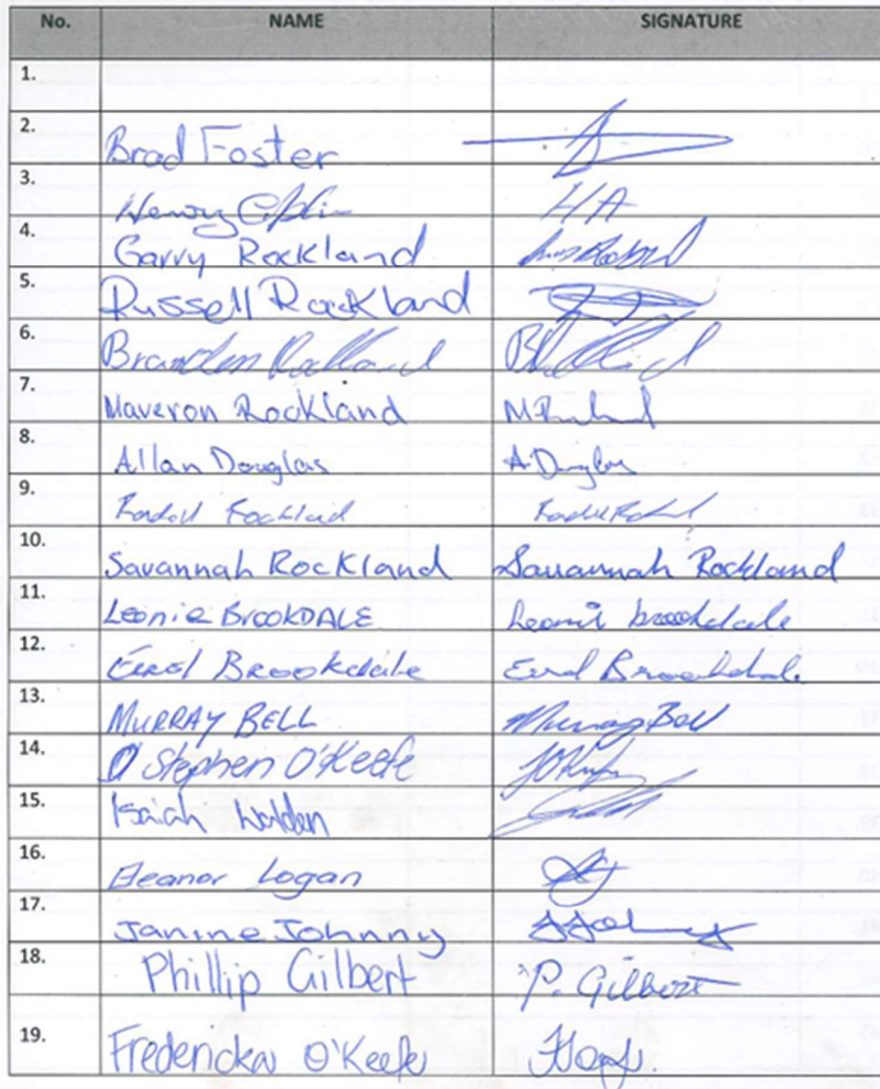 No. NAME SIGNATURE
1.
2. Brad Foster
3. Henry HA
4. Garry Rockland
5. Russell Rockland
6. Brandon Rockland
7. Maveron Rockland
8. Allan Douglas A Douglas
9.
10. Savannah Rockland Savannah Rockland
11. Leonie BROOKDALE Leonie brookdale
12. Errol Brookdale Errol Brookdale
13. MURRAY BELL Murray Bell
14. Stephen O'Keefe
15. Isaiah Walden
16. Eleanor Logan
17. Janine Johnny
18. Phillip Gilbert P. Gilbert
19. Fredericka O'Keefe